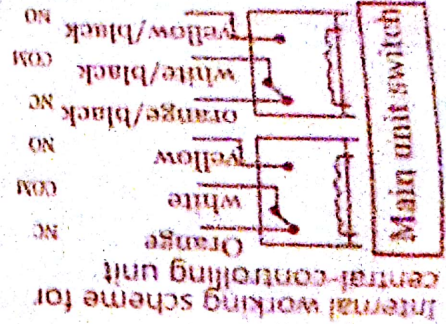 Internal working scheme for
central-controlling unit
Orange NC
white COM
yellow NO
orange/black NC
white/black COM
yellow/black NO
Main unit switch